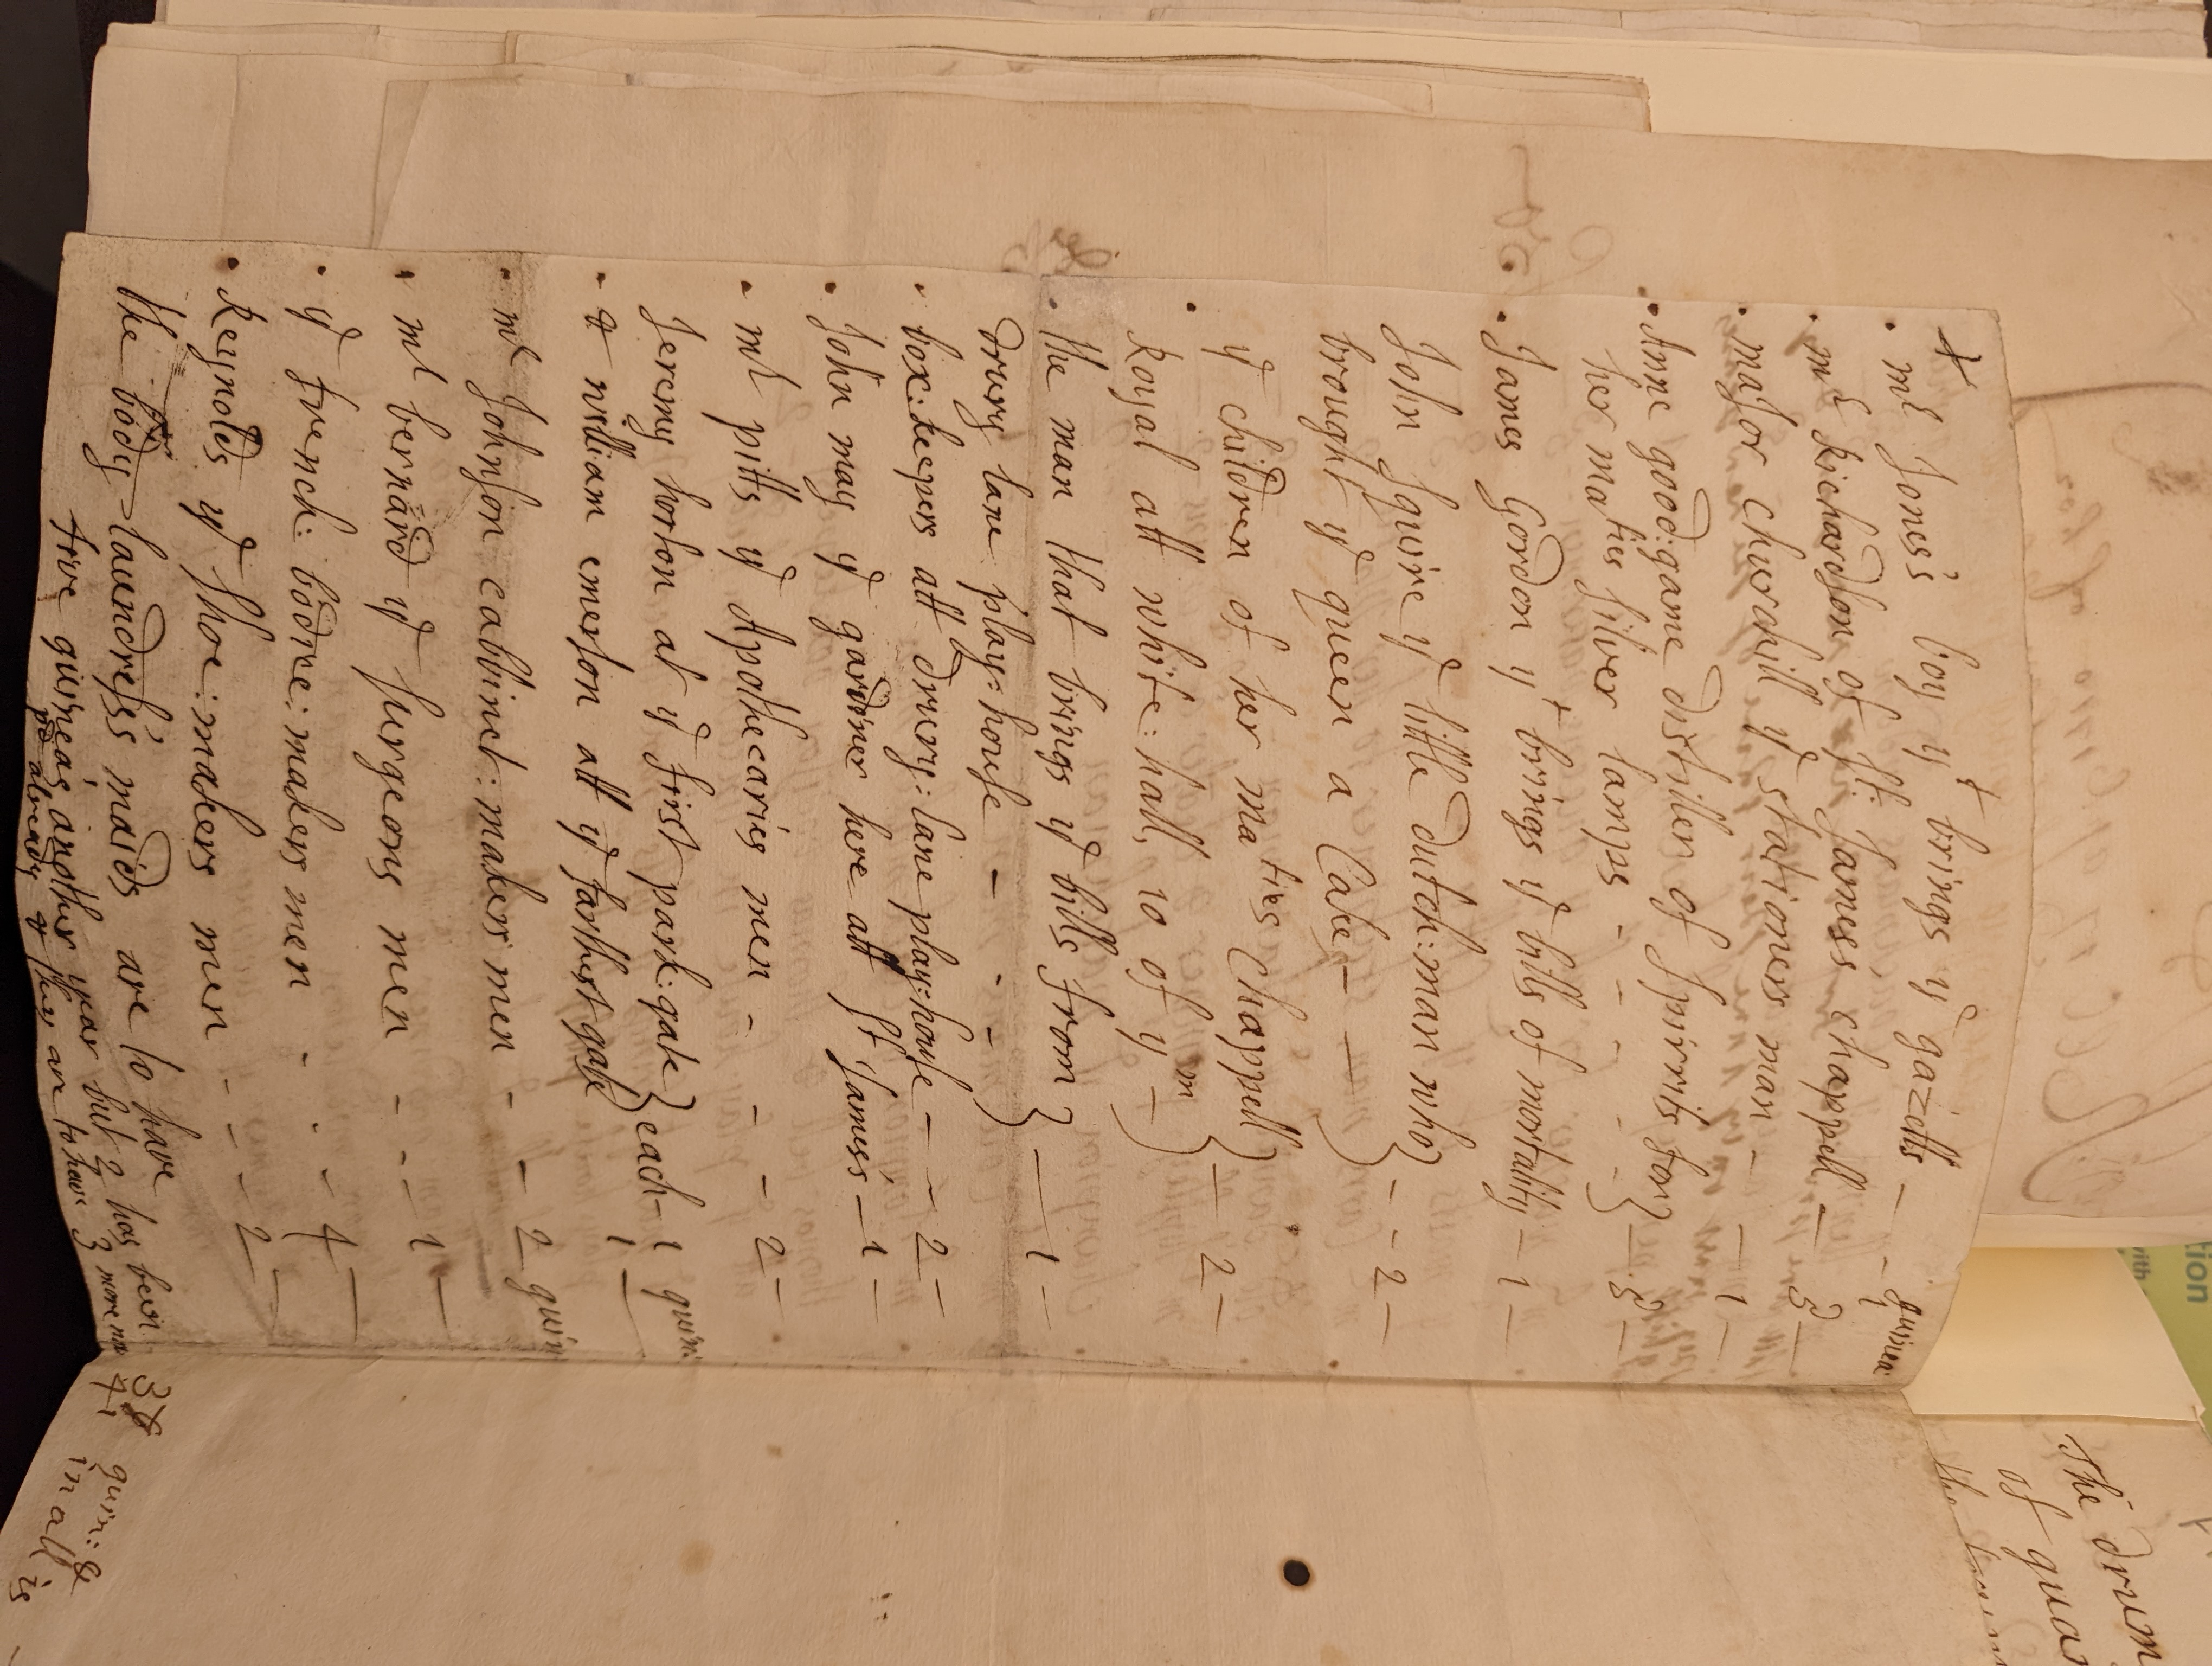 mr Jones's boy yt brings ye gazetts — — 1 guinea
mr Richardson of St: James's chappell — 3 —
major churchill ye stationers man — — 1 —
Anne good:game distiller of spirrits for } — 3 —
her maties silver lamps - - - -
James Gordon yt brings ye bills of mortality — 1 —
John Squire ye little dutch:man who } - - 2 —
brought ye queen a Cake — —
ye children of her maties Chappell } — 2 —
Royal att white:hall, 10 of ym —
the man that brings ye bills from } — 1 —
drury lane play:house — - -
box:keepers att drury:lane play:house — - 2 —
John may ye gardner here att St James's — 1 —
mr pitts ye Apothecaries men - - - 2 —
Jeremy horton at ye first park:gate } each 1 guin:
& william emerson att ye farthest gate } 1 —
mr Johnson cabbinet:makers men - - 2 guin
mr bernard ye surgeons men - - - 1 —
ye french:bodice:makers men - - - 4 —
Reynolds ye shoe:makers men - - - 2 —
the body laundress's maids are to have
five guineas another year but 2 has been
pd already & they are to have 3 more now
38 guin: &
41 in all is
The drum
of guar
the